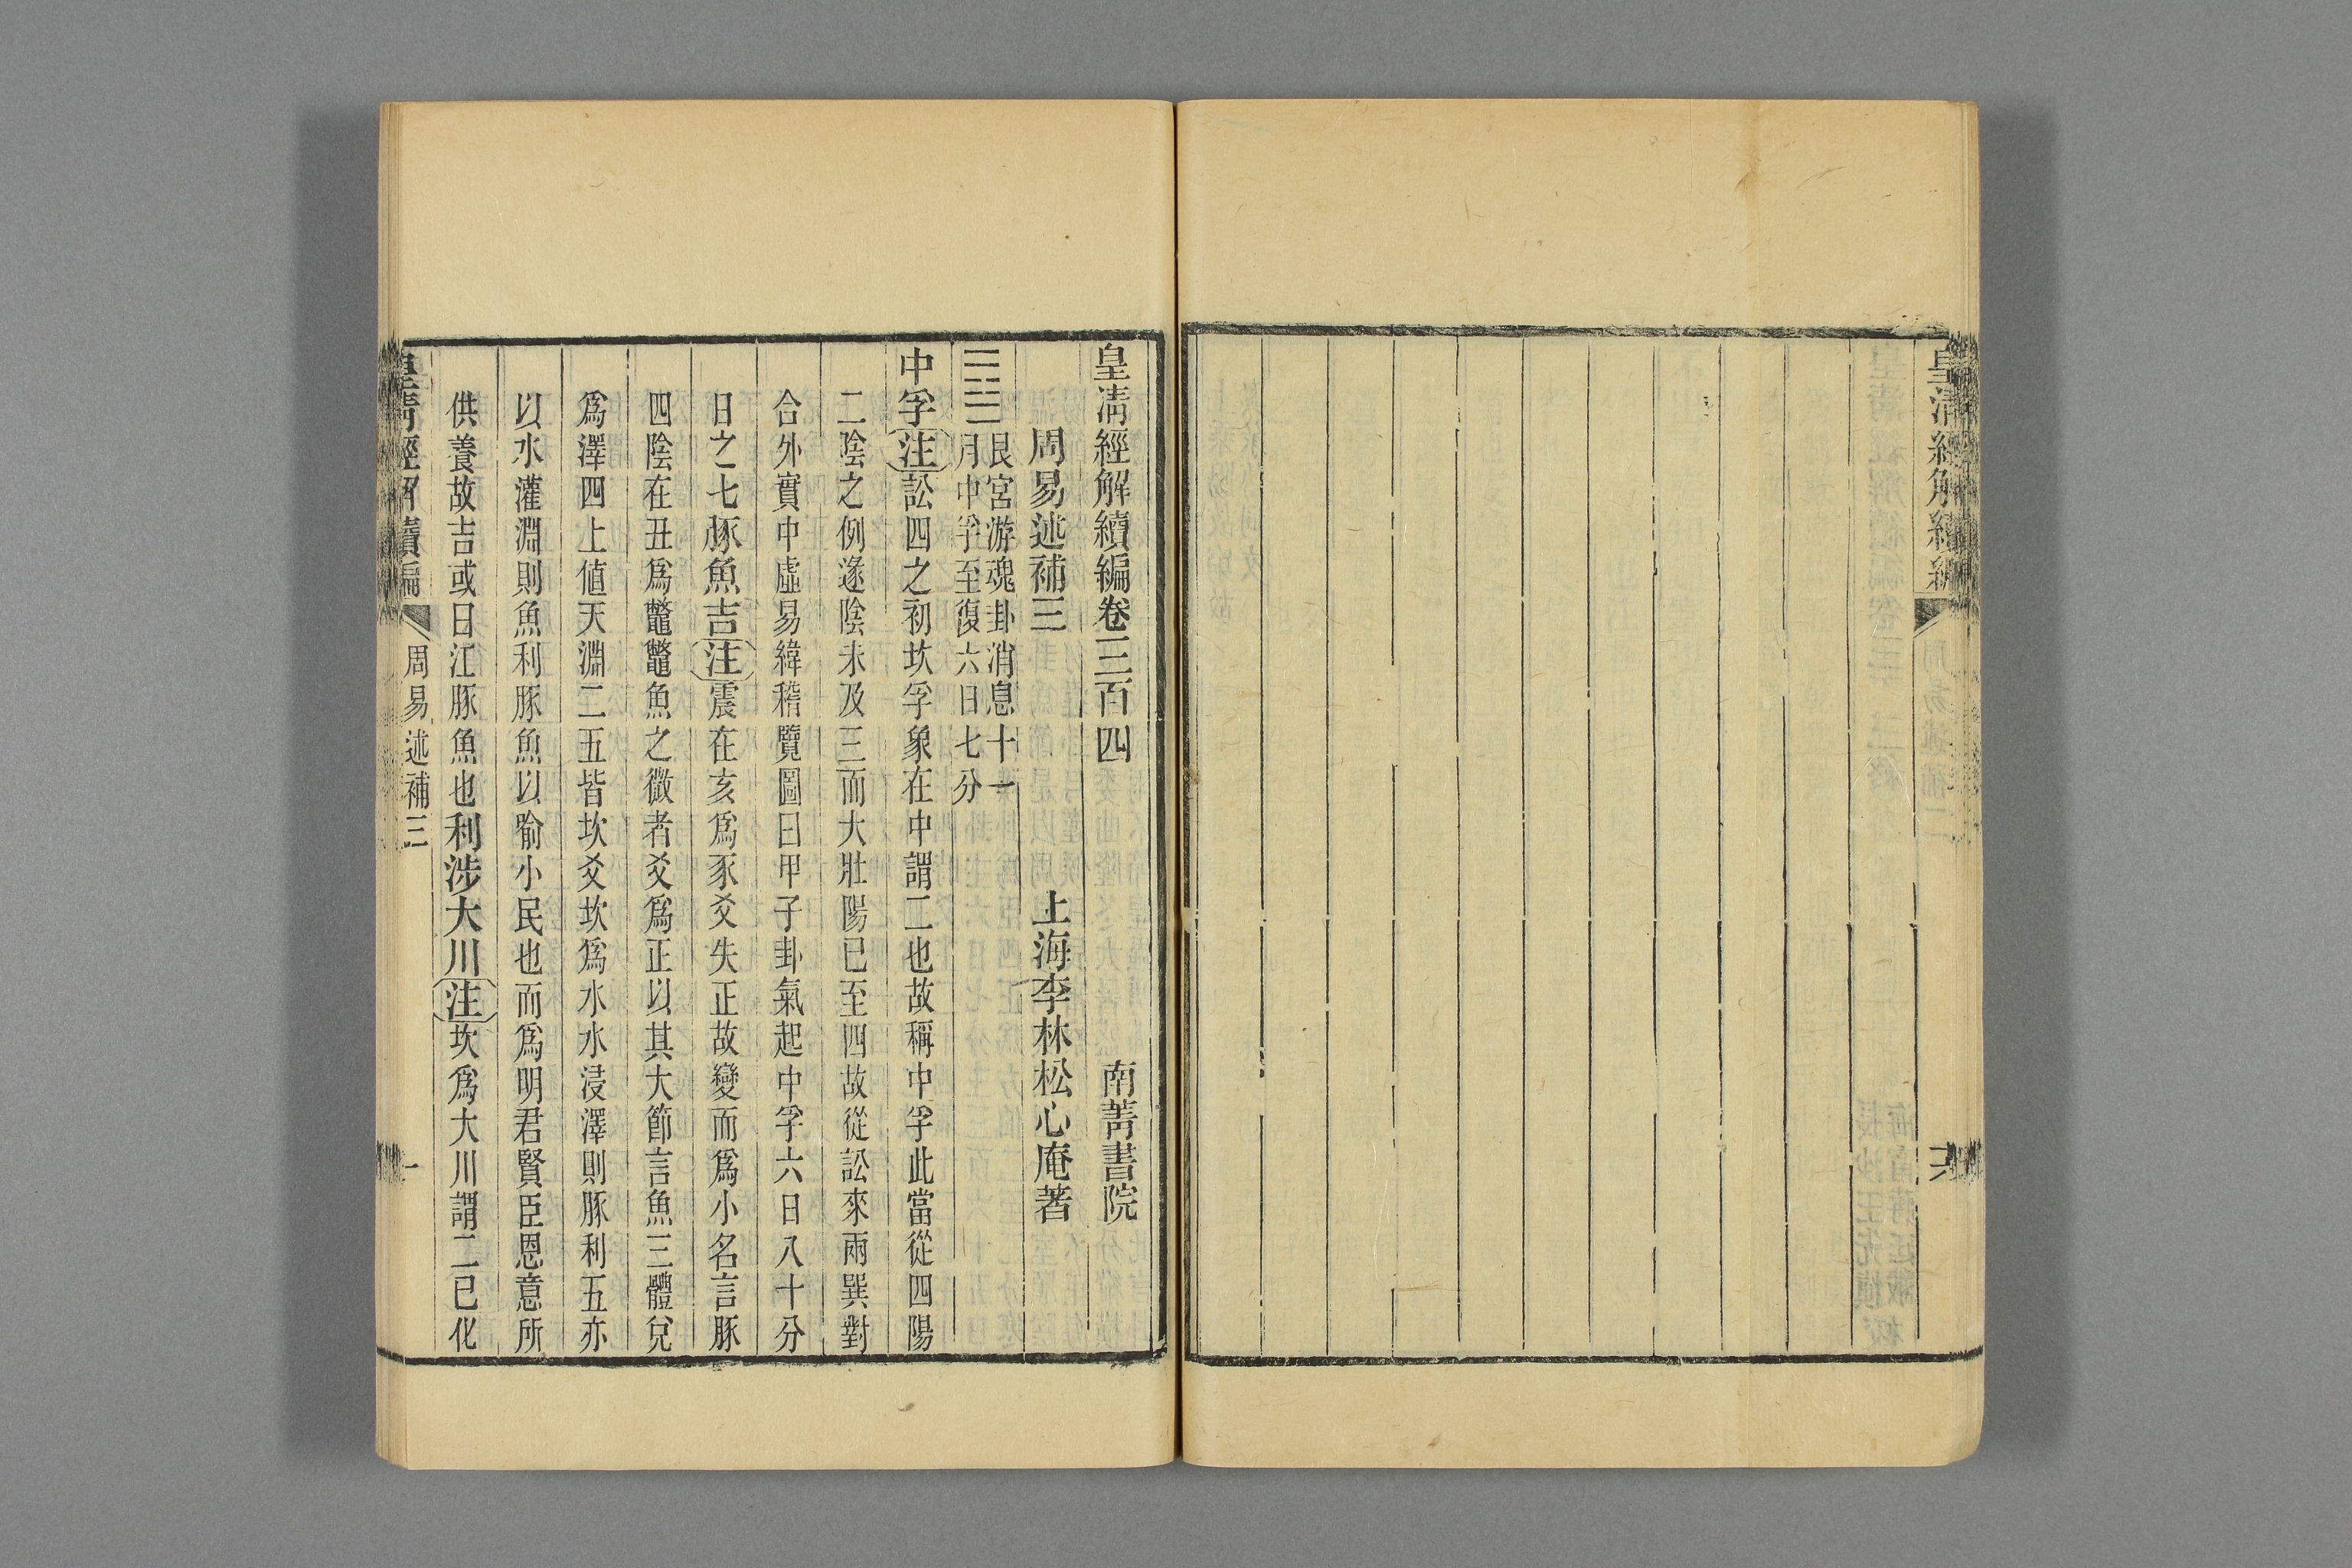 皇清經解續編
六
皇清經解續編卷三百四
南菁書院
周易述補三
上海李林松心庵著
䷼艮宮游魂卦消息十一
月中孚至復六日七分
中孚注訟四之初坎孚象在中謂二也故稱中孚此當從四陽
二陰之例遂陰未及三而大壯陽已至四故從訟來兩巽對
合外實中虛易緯稽覽圖曰甲子卦氣起中孚六日八十分
日之七豚魚吉注震在亥爲豕爻失正故變而爲小名言豚
四陰在丑爲鼈鼈魚之微者爻爲正以其大節言魚三體兌
爲澤四上値天淵二五皆坎爻坎爲水水浸澤則豚利五亦
以水灌淵則魚利豚魚以喻小民也而爲明君賢臣恩意所
供養故吉或曰江豚魚也利涉大川注坎爲大川謂二已化
皇清經解續編
周易述補三
一